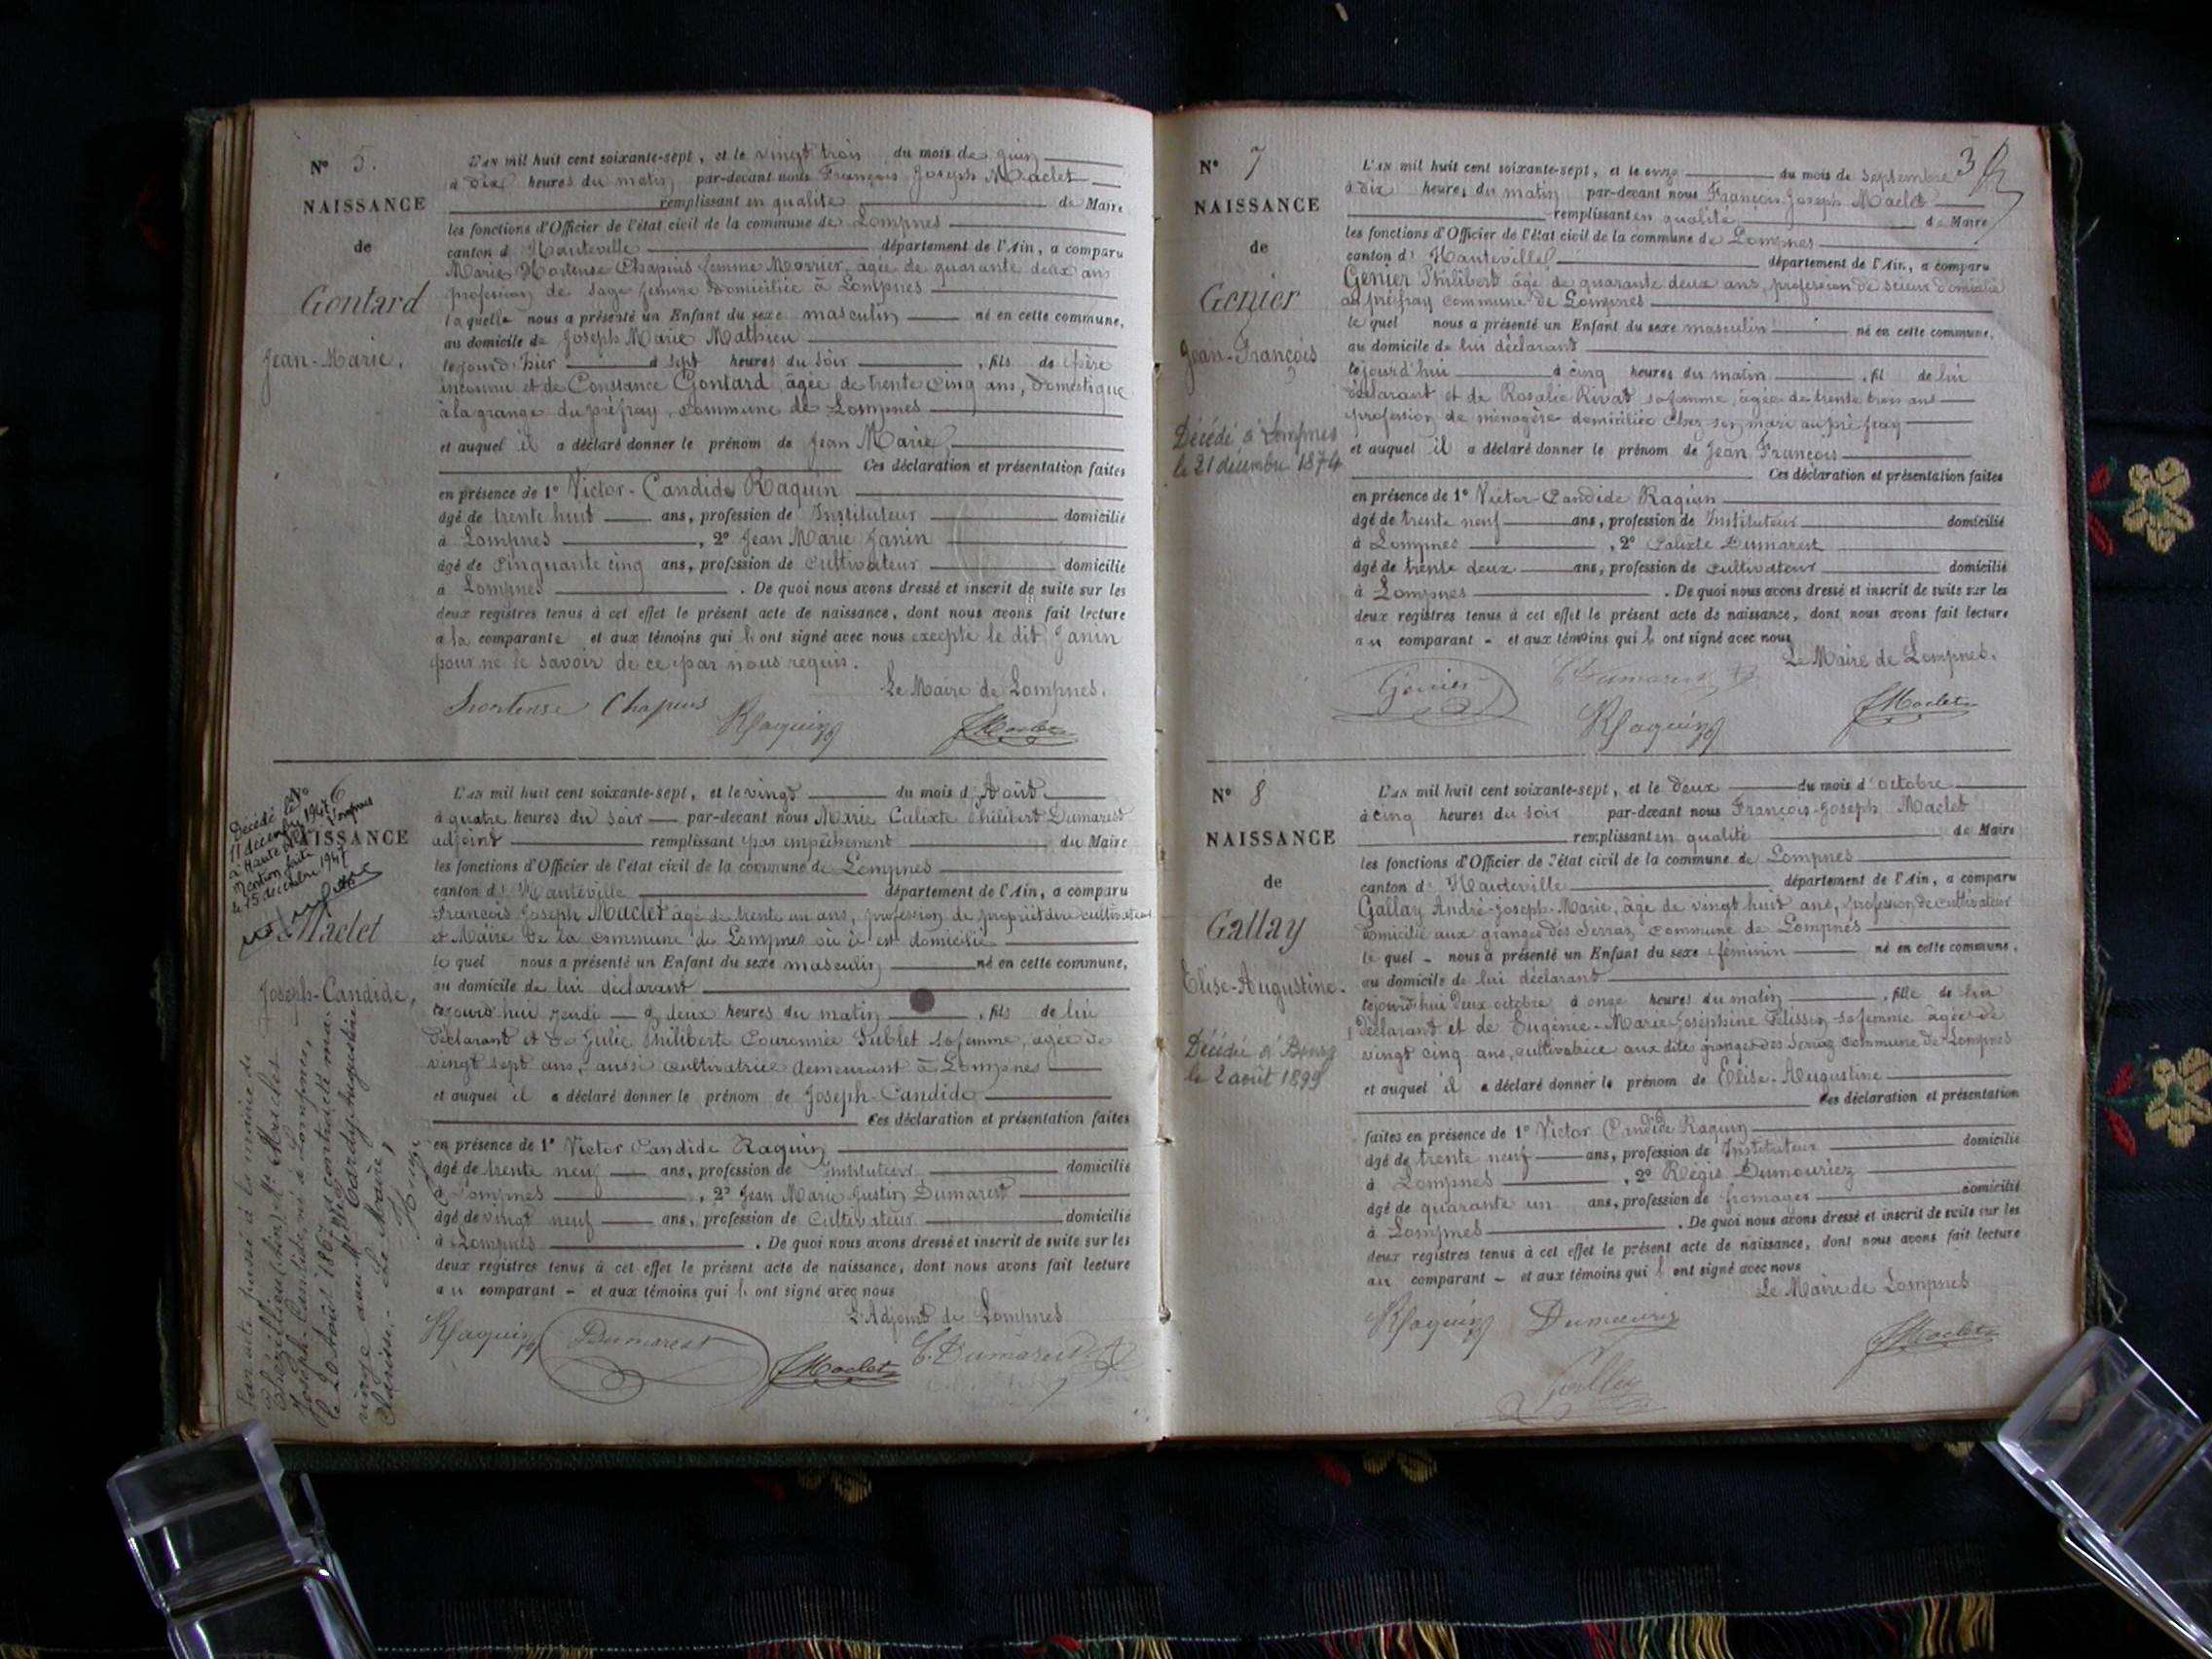 N° 5.
NAISSANCE
de
Gontard
Jean-Marie.
L'AN mil huit cent soixante-sept, et le vingt trois du mois de juin
à dix heures du matin par-devant nous François Joseph Maclet
remplissant en qualité de Maire
les fonctions d'Officier de l'état civil de la commune de Lompnes
canton d' Hauteville département de l'Ain, a comparu
Marie Hortense Chapuis femme âgée de quarante deux ans
profession de sage femme domiciliée à Lompnes
laquelle nous a présenté un Enfant du sexe masculin né en cette commune,
au domicile de Joseph Marie Mathieu
le jour d'hier à sept heures du soir , fils de père
inconnu et de Constance Gontard, âgée de trente cinq ans, domestique
à la grange du préfray, commune de Lompnes
et auquel il a déclaré donner le prénom de Jean Marie
Ces déclaration et présentation faites
en présence de 1° Victor-Candide Raquin
âgé de trente huit ans, profession de Instituteur domicilié
à Lompnes , 2° Jean Marie Janin
âgé de Cinquante cinq ans, profession de Cultivateur domicilié
à Lompnes . De quoi nous avons dressé et inscrit de suite sur les
deux registres tenus à cet effet le présent acte de naissance, dont nous avons fait lecture
a la comparante et aux témoins qui l'ont signé avec nous excepté le dit Janin
pour ne le savoir de ce par nous requis.
Le Maire de Lompnes.
Hortense Chapuis Raquin Maclet
N° 6
NAISSANCE
Décédé le
11 décembre 1947
à Hauteville Lompnes
Mention faite
le 15 décembre 1947
Maclet
Joseph-Candide,
Par acte passé à la mairie de
Mr Maclet
Joseph-Candide, né à Lompnes,
le 20 Août 1867, a contracté ma-
riage avec Melle Augustine
Le Maire,
L'AN mil huit cent soixante-sept, et le vingt du mois d'Août
à quatre heures du soir par-devant nous Marie Calixte Philibert Dumarest
adjoint remplissant par empêchement du Maire
les fonctions d'Officier de l'état civil de la commune de Lompnes
canton d' Hauteville département de l'Ain, a comparu
François Joseph Maclet âgé de trente un ans, profession de propriétaire cultivateur
et Maire de la commune de Lompnes où il est domicilié
le quel nous a présenté un Enfant du sexe masculin né en cette commune,
au domicile de lui déclarant
cejourd'hui jeudi à deux heures du matin , fils de lui
déclarant et de Julie Philiberte Couronnée Sublet sa femme, agée de
vingt sept ans, aussi cultivatrice demeurant à Lompnes
et auquel il a déclaré donner le prénom de Joseph-Candide
Ces déclaration et présentation faites
en présence de 1° Victor Candide Raquin
âgé de trente neuf ans, profession de Instituteur domicilié
à Lompnes , 2° Jean Marie Justin Dumarest
âgé de vingt neuf ans, profession de Cultivateur domicilié
à Lompnes . De quoi nous avons dressé et inscrit de suite sur les
deux registres tenus à cet effet le présent acte de naissance, dont nous avons fait lecture
au comparant - et aux témoins qui l'ont signé avec nous
L'Adjoint de Lompnes
Raquin Dumarest Maclet C. Dumarest
3
N° 7
NAISSANCE
de
Genier
Jean-François
Décédé à Lompnes
le 21 décembre 1874
L'AN mil huit cent soixante-sept, et le onze du mois de septembre
à dix heures du matin par-devant nous François Joseph Maclet
remplissant en qualité de Maire
les fonctions d'Officier de l'état civil de la commune de Lompnes
canton d' Hauteville département de l'Ain, a comparu
Genier Philibert âgé de quarante deux ans, profession de scieur domicilié
au préfray commune de Lompnes
le quel nous a présenté un Enfant du sexe masculin né en cette commune,
au domicile de lui déclarant
cejourd'hui à cinq heures du matin , fil de lui
déclarant et de Rosalie Rivat sa femme, agée de trente trois ans
profession de ménagère domiciliée chez son mari au préfray
et auquel il a déclaré donner le prénom de Jean François
Ces déclaration et présentation faites
en présence de 1° Victor-Candide Raquin
âgé de trente neuf ans, profession de Instituteur domicilié
à Lompnes , 2° Calixte Dumarest
âgé de trente deux ans, profession de cultivateur domicilié
à Lompnes . De quoi nous avons dressé et inscrit de suite sur les
deux registres tenus à cet effet le présent acte de naissance, dont nous avons fait lecture
au comparant - et aux témoins qui l'ont signé avec nous
Le Maire de Lompnes.
Genier C. Dumarest
Raquin Maclet
N° 8
NAISSANCE
de
Gallay
Elise-Augustine.
Décédée à Bourg
le 2 août 1899
L'AN mil huit cent soixante-sept, et le deux du mois d'octobre
à cinq heures du soir par-devant nous François-Joseph Maclet
remplissant en qualité de Maire
les fonctions d'Officier de l'état civil de la commune de Lompnes
canton d' Hauteville département de l'Ain, a comparu
Gallay André-Joseph-Marie, âgé de vingt huit ans, profession de cultivateur
domicilié aux granges des Serraz commune de Lompnes
le quel - nous a présenté un Enfant du sexe féminin né en cette commune,
au domicile de lui déclarant
cejourd'hui deux octobre à onze heures du matin , fille de lui
déclarant et de Eugénie-Marie-Joséphine Pélisson sa femme agée de
vingt cinq ans, cultivatrice aux dites granges des Serraz commune de Lompnes
et auquel il a déclaré donner le prénom de Elise-Augustine
Ces déclaration et présentation
faites en présence de 1° Victor Candide Raquin
âgé de trente neuf ans, profession de Instituteur domicilié
à Lompnes , 2° Régis Dumouriez
âgé de quarante un ans, profession de fromager domicilié
à Lompnes . De quoi nous avons dressé et inscrit de suite sur les
deux registres tenus à cet effet le présent acte de naissance, dont nous avons fait lecture
au comparant - et aux témoins qui l'ont signé avec nous
Le Maire de Lompnes
Raquin Dumouriez
Maclet
Gallay